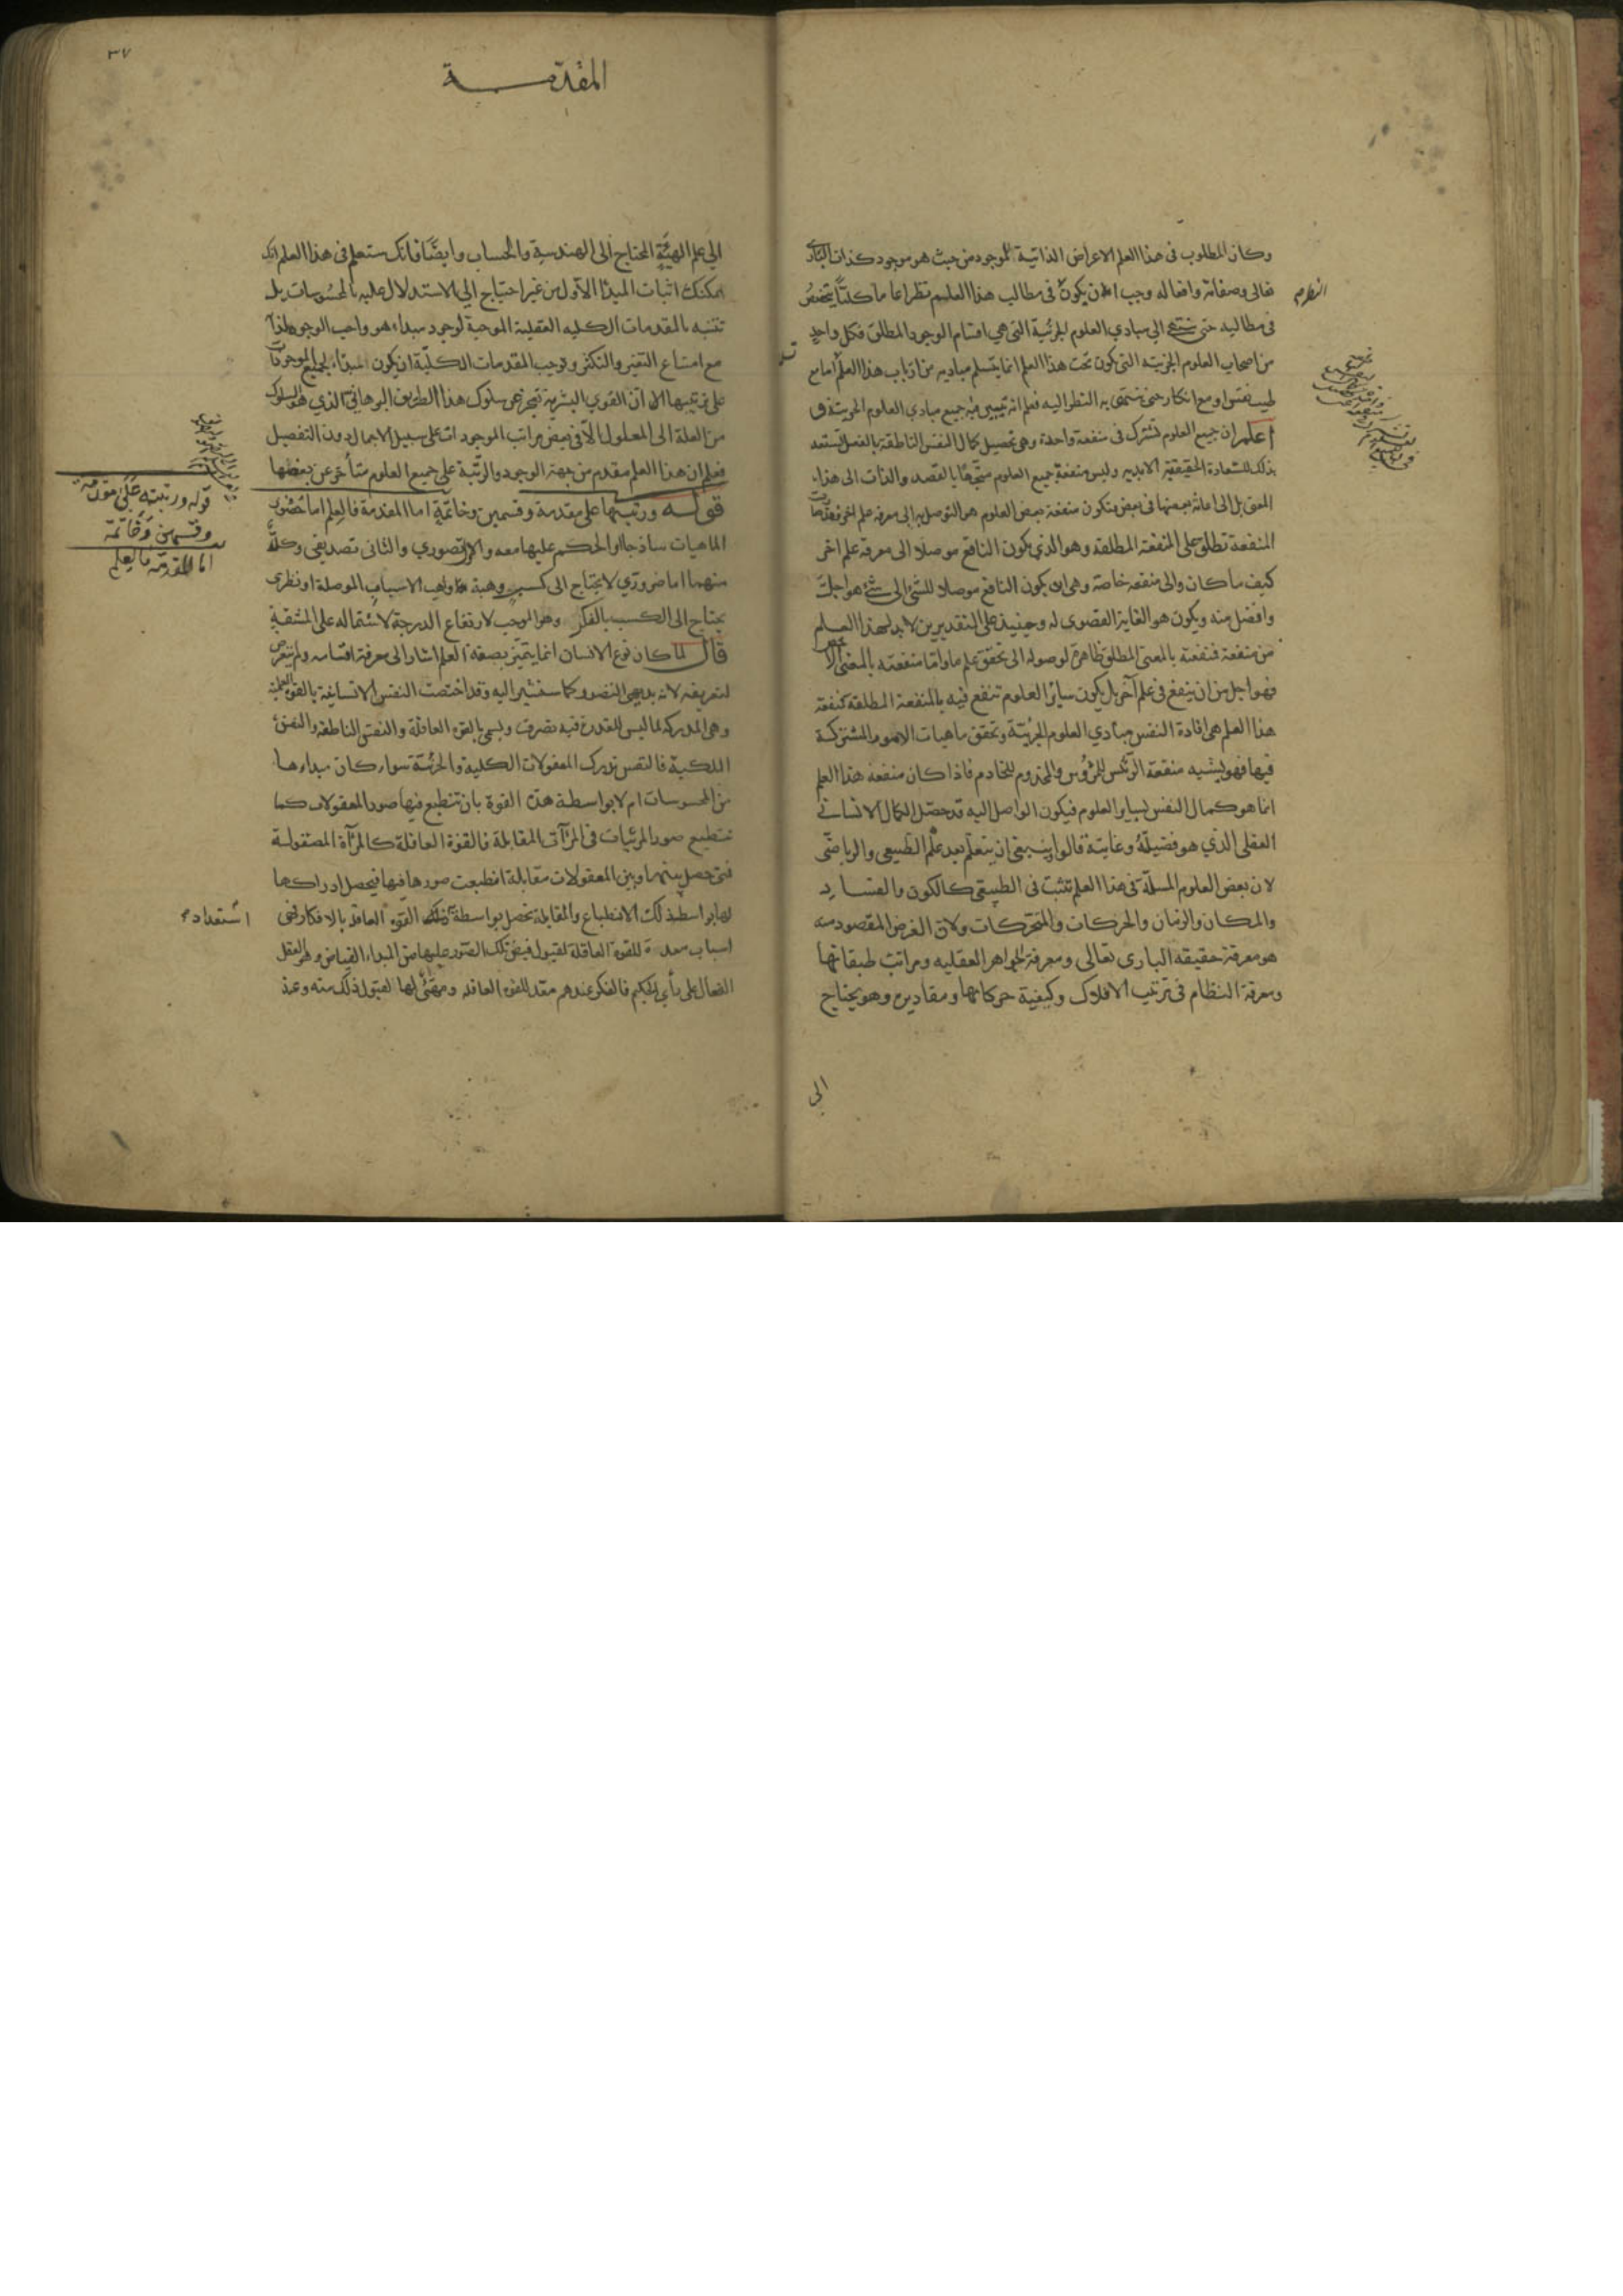 وكان المطلوب فى هذا العلم الاعراض الذاتية للموجود من حيث هو موجود كذات البارى
تعالى وصفاته وافعاله وجب ان يكون فى مطالب هذا العلم نظرا عاما كليا
فى مطالبه حتى ينتهى الى مبادي العلوم الجزئية التى هي اقسام الوجود المطلق فكل واحد
من اصحاب العلوم الجزئية التى تكون تحت هذا العلم انما يتسلم مباديه من ارباب هذا العلم اما مع
طيب نفس او مع انكار حتى ينتهى به النظر اليه فعلم انه تبيين فيه جميع مبادي العلوم الجزئية
اعلم ان جميع العلوم تشترك فى منفعة واحدة وهى تحصيل كمال النفس الناطقة بالفعل
بذلك للسعادة الحقيقية الابدية وليس منفعة جميع العلوم متجها بالقصد والذات الى هذا
المعنى بل الى اعانة بعضها فى بعض فتكون منفعة بعض العلوم هو التوصل به الى معرفة علم اخر
المنفعة تطلق على المنفعة المطلقة وهو الذي يكون النافع موصلا الى معرفة علم اخر
كيف ما كان والى منفعة خاصة وهى ان يكون النافع موصلا للشئ الى شئ هو اجل
وافضل منه ويكون هو الغاية القصوى له وحينيذ على التقديرين لابد لهذا العلم
من منفعة فمنفعته بالمعنى المطلق ظاهرة لوصوله الى تحقق علم ما واما منفعته بالمعنى الاخص
فهو اجل من ان ينفع فى علم آخر بل يكون ساير العلوم تنفع فيه بالمنفعة المطلقة كمنفعة
هذا العلم هى افادة النفس مبادي العلوم الجزئية وتحقق ماهيات الامور المشتركة
فيها فهو يشبه منفعة الرئيس للمرؤس والمخدوم للخادم فاذا كان منفعة هذا العلم
انما هو كمال النفس لساير العلوم فيكون الواصل اليه قد حصل الكمال الانسانى
العقلى الذي هو فضيلة وغاية قالوا وينبغى ان يتعلم بعد علم الطبيعى والرياضى
لان بعض العلوم المسلمة فى هذا العلم تثبت فى الطبيعى كالكون والفساد
والمكان والزمان والحركات والمتحركات ولان الغرض المقصود منه
هو معرفة حقيقة البارى تعالى ومعرفة الجواهر العقليه ومراتب طبقاتها
ومعرفة النظام فى ترتيب الافلاك وكيفية حركاتها ومقاديره وهو يحتاج
الى
المقدمة
٣٧
الى علم الهيئة المحتاج الى الهندسة والحساب وايضا فانك ستعلم فى هذا العلم انك
يمكنك اثبات المبدا الاول من غير احتياج الى الاستدلال عليه بالمحسوسات بل
تتنبه بالمقدمات الكليه العقلية الموجبة لوجود مبداء هو واجب الوجود لذاته
مع امتناع التغير والتكثر وتوجب المقدمات الكلية ان يكون المبداء لجميع الموجودات
على ترتيبها الا ان القوي البشرية تعجز عن سلوك هذا الطريق البرهانى الذي هو السلوك
من العلة الى المعلول الا فى بعض مراتب الموجودات على سبيل الاجمال دون التفصيل
فعلم ان هذا العلم مقدم من جهة الوجود والرتبة على جميع العلوم متأخر عن بعضها
قوله ورتبتها على مقدمة وقسمين وخاتمة اما المقدمة فالعلم اما تصور
الماهيات ساذجا او الحكم عليها معه والاول تصوري والثانى تصديقى وكل
منهما اما ضروري لا يحتاج الى كسب وهبة واهب الاسباب الموصلة او نظرى
يحتاج الى الكسب بالفكر وهو الموجب لارتفاع الدرجة لاشتماله على المشقة
قال لما كان نوع الانسان انما يتميز بصفة العلم اشار الى معرفة اقسامه ولم يتعرض
لتعريفه لانه بديهى التصور كما سنشير اليه وقد اختصت النفس الانسانية بالقوة العلمية
وهى المدركة لما ليس للقدرة فيه تصرف ويسمى بالقوة العاقلة والنفس الناطقة والنفس
الملكية فالنفس تدرك المعقولات الكلية والجزئية سواء كان مبداءها
من المحسوسات ام لا بواسطة هذه القوة بان تنطبع فيها صور المعقولات كما
تنطبع صور المرئيات فى المرآت المقابلة فالقوة العاقلة كالمرآة المصقولة
فمتى حصل بينها وبين المعقولات مقابلة انطبعت صورها فيها فيحصل ادراكها
لها بواسطة ذلك الانطباع والمقابلة تحصل بواسطة القوة العاقلة بالافكار فهى
اسباب معدة للقوة العاقلة لقبول فيض تلك الصور عليها من المبداء الفياض وهو العقل
الفعال على رأي الحكيم فالفكر عندهم معد للقوة العاقلة ومهيئ لها لقبول ذلك منه وعند
قوله ورتبته على مقدمة
وقسمين وخاتمة
اما المقدمة فالعلم
استعداد